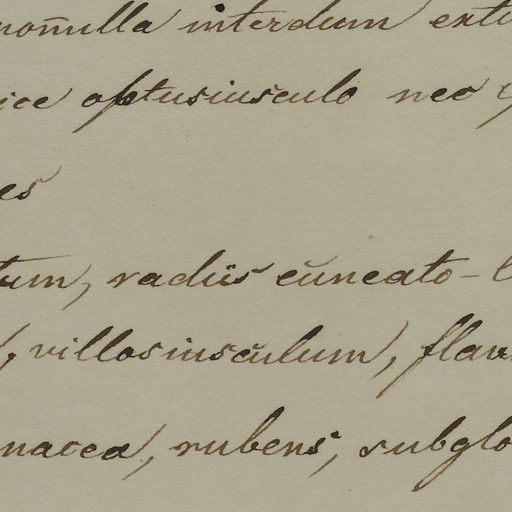 nonnulla interdum ext
ice optusiusculo nec
es
tum, radiis cuneato-l
, villosiusculum, flav
nacea, rubens, subglo